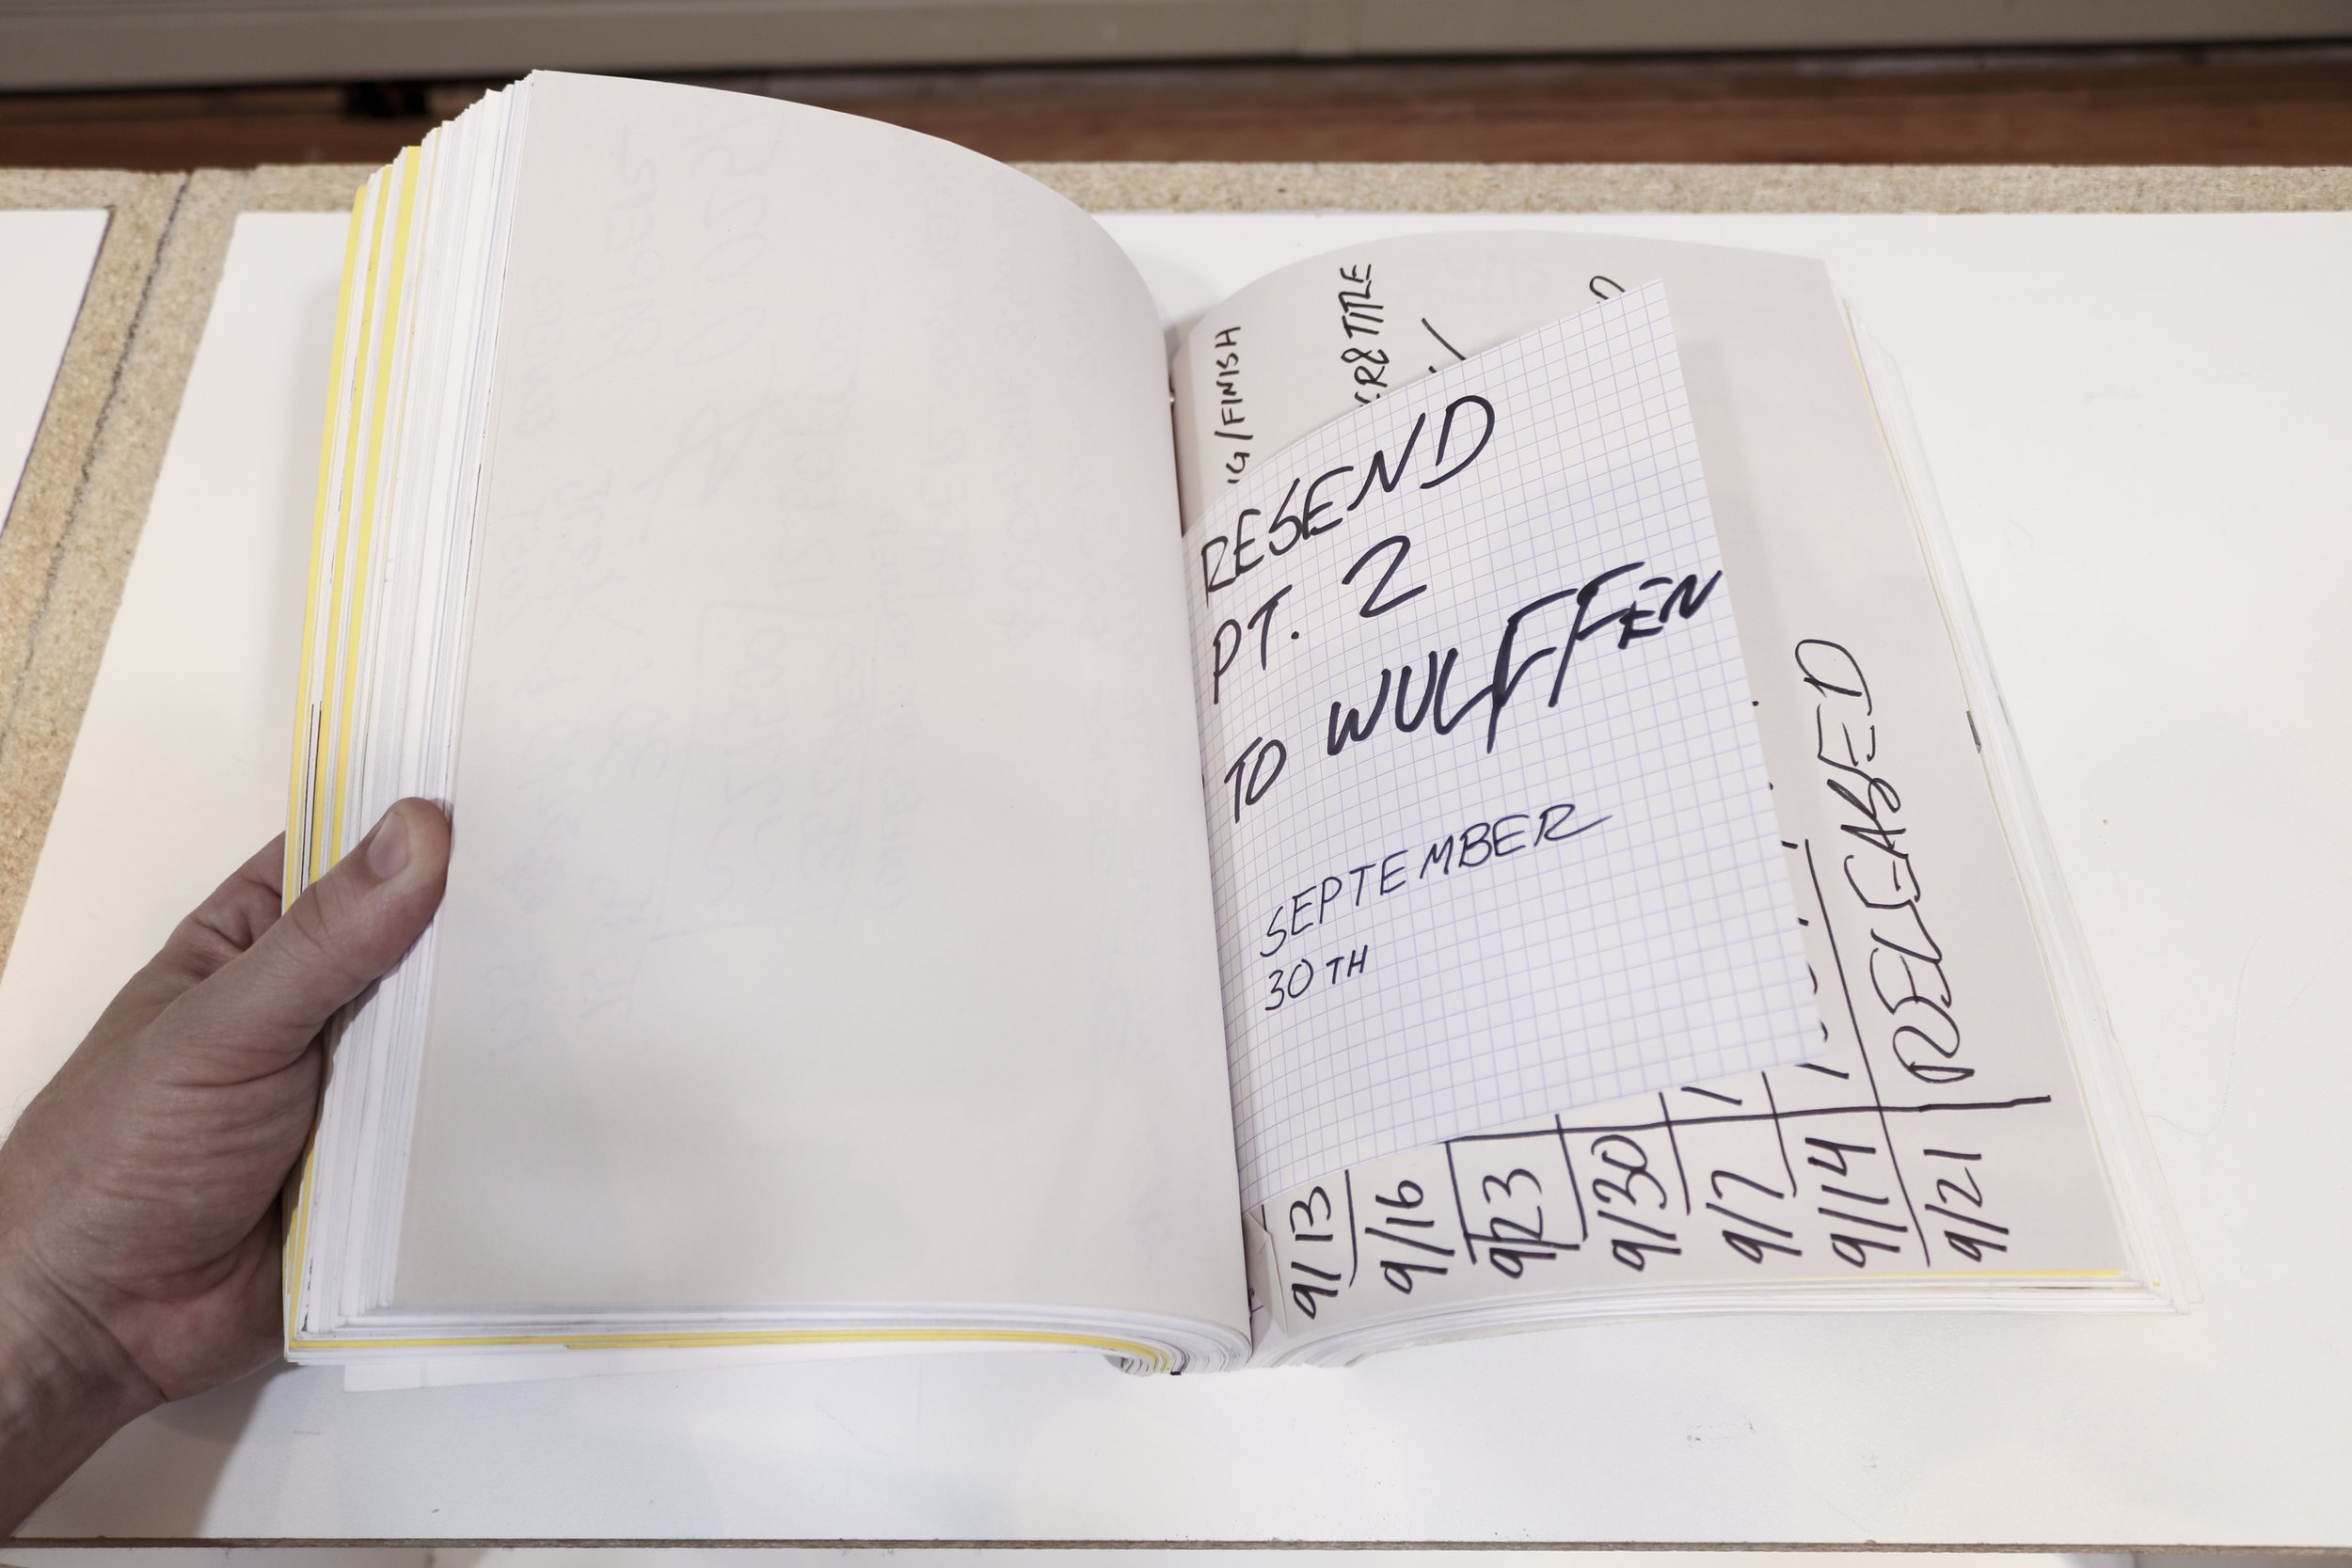 RESEND
PT. 2
TO WULFFEN
SEPTEMBER
30TH
G/FINISH
& TITLE
9/13
9/16
9/23
9/30
9/7
9/14
9/21 RELEASED